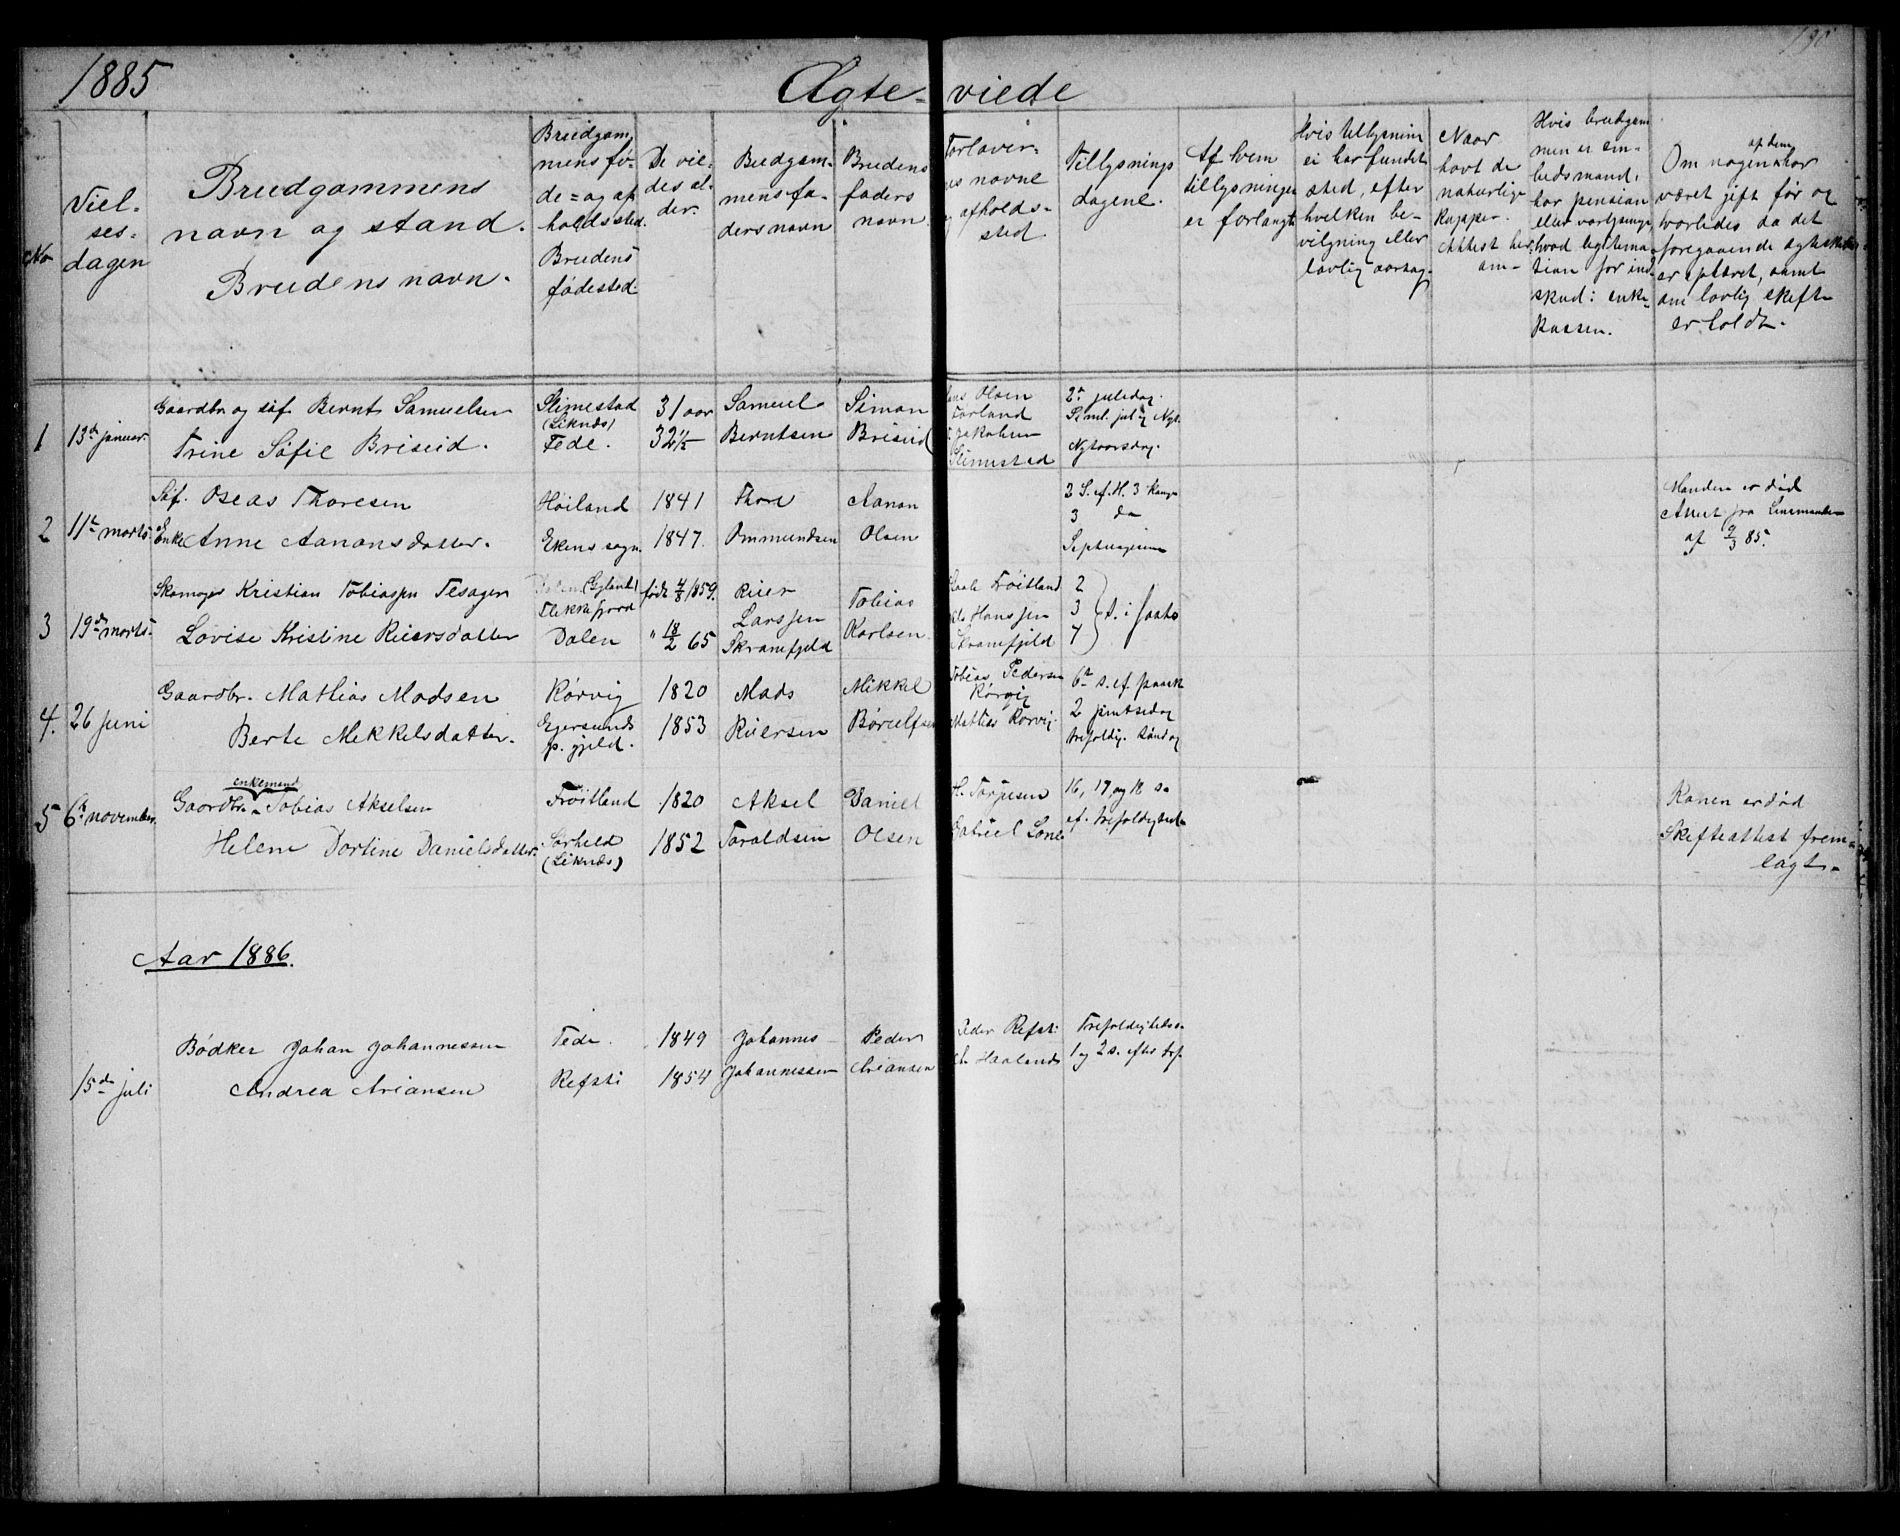 1885
Ægte-viede
No
Viel-
ses-
dagen
Brudgommens
navn og stand.
Brudens navn.
Brudgom
mens fø-
de= og op
holdssted.
Brudens
fødested.
De vie-
des al-
der.
Budgom-
mens fa-
ders navn
Brudens
faders
navn
Forlover-
navne
afholds-
sted
Tillysnings
dagene.
Af hvem
tillysningen
er forlangt
Hvis tillysning
ei har fundet
sted, efter
hvilken be-
vilgning eller
lovlig aarsag.
Naar
havt de
naturlige
kopper.
Attest her
om-
Hvis brudgom
men er em-
bedsmand,
har pension
hvad legitima-
tion for ind
skud i enke-
kassen.
Om nogen af dem har
været gift før og
hvorledes da det
foregaaende ægteskab
er opløret, samt
om lovlig skifte
er holdt.
1
13de januar.
Gaardbr. og søf. Bernt Samuelsen
Trine Sofie Briseid.
Slimestad
(Liknæs)
Fede.
31 aar
32 1/2
Samuel
Berntsen
Simon
Briseid
Olsen
Førland
Jakobsen
Slimestad
2den juledag.
Nytaarsdag.
2
11te marts.
Søf. Oseas Thoresen
Enke Anne Aanonsdatter.
Høiland
Ekens sogn.
1841
1847.
Thore
Ommundsen
Aanon
Olsen
2 S. ef. H. 3 Konge
3 do
Manden er død
Attest fra Lensmanden
af 9/3 85.
3
19de marts.
Skomager Kristian Tobiassen Tesager
Lovise Kristine Reiersdatter
(Gyland)
Flekkefjord
Dalen
født 4/8 1859.
" 18/2 65
Reier
Larssen
Skramfjeld
Tobias
Karlsen
Frøitland
Hanssen
Skramfjeld
2
3
4
s. i faste
4.
26 juni
Gaardbr. Mathias Madsen
Berte Mikkelsdatter.
Rørvig
Egersunds
p. gjeld.
1820
1853
Mads
Reiersen
Mikkel
Tobias Pedersen
Rørvig
Mathias Rørvig.
6te s. ef. paask
2 pintsedag
trefoldig. søndag
5
6te november.
enkemand
Gaardbr. Tobias Akselsen
Helene Dortine Danielsdatter.
Frøitland
Sørheld
(Liknæs)
1820
1852
Aksel
Taraldsen
Daniel
Olsen
H. Tørjesen
Gabriel Lone
16, 17, og 18 s.
ef. trefoldighed
Konen er død
Skifteattest frem-
lagt.
Aar 1886.
15de juli
Bødker Johan Johannessen
Andrea Ariansen
Fede.
Refsti
1849
1854
Johannes
Johannessen
Peder
Ariansen
Peder Refsti
Haaland
Trefoldigheds s.
1 og 2 s. efter tref.